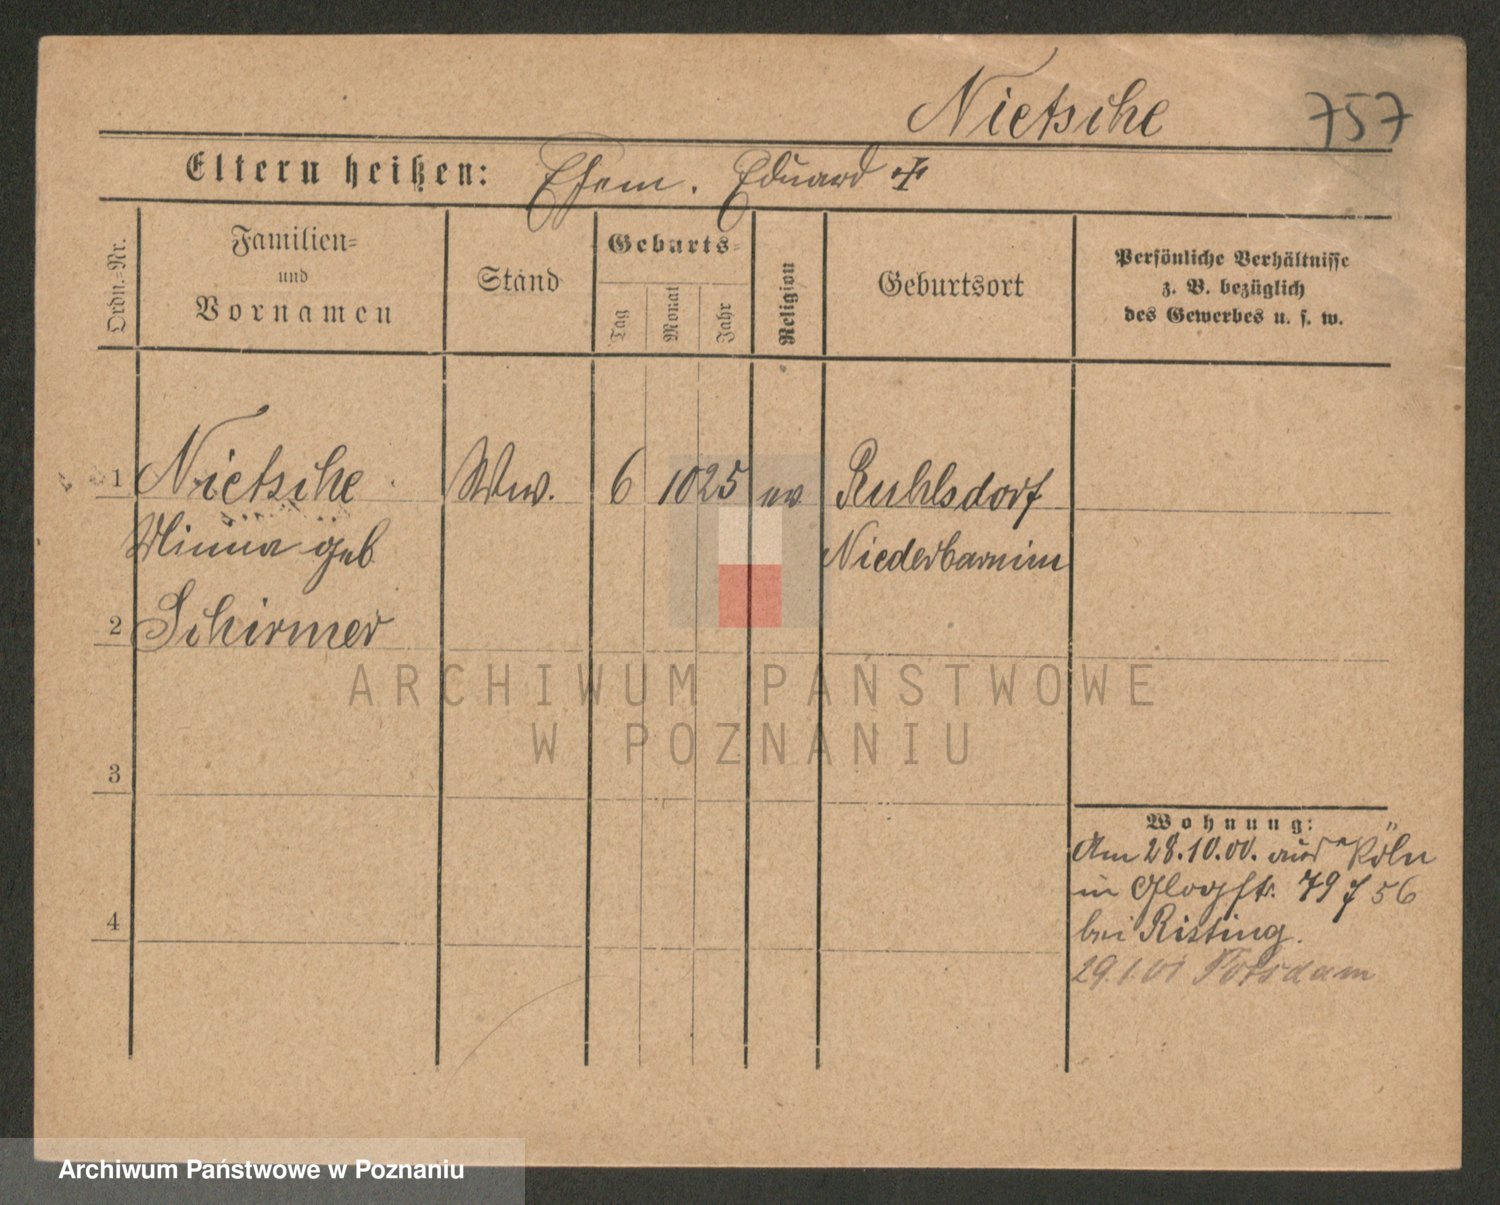 Nietsche 757
Eltern heißen: Ehem. Eduard ✝
Ordn.=Nr.
Familien=
und
Vornamen
Stand
Geburts=
Tag
Monat
Jahr
Religion
Geburtsort
Persönliche Verhältnisse
z. B. bezüglich
des Gewerbes u. s. w.
1 Nietsche Ww. 6 10 25 ev Ruhlsdorf
Minna geb Niederbarnim
2 Schirmer
ARCHIWUM PAŃSTWOWE
W POZNANIU
3
Wohnung:
Am 28.10.00. aus Köln
in Glogstr. 79 56
4
bei Risting.
29.1.01 Potsdam
Archiwum Państwowe w Poznaniu